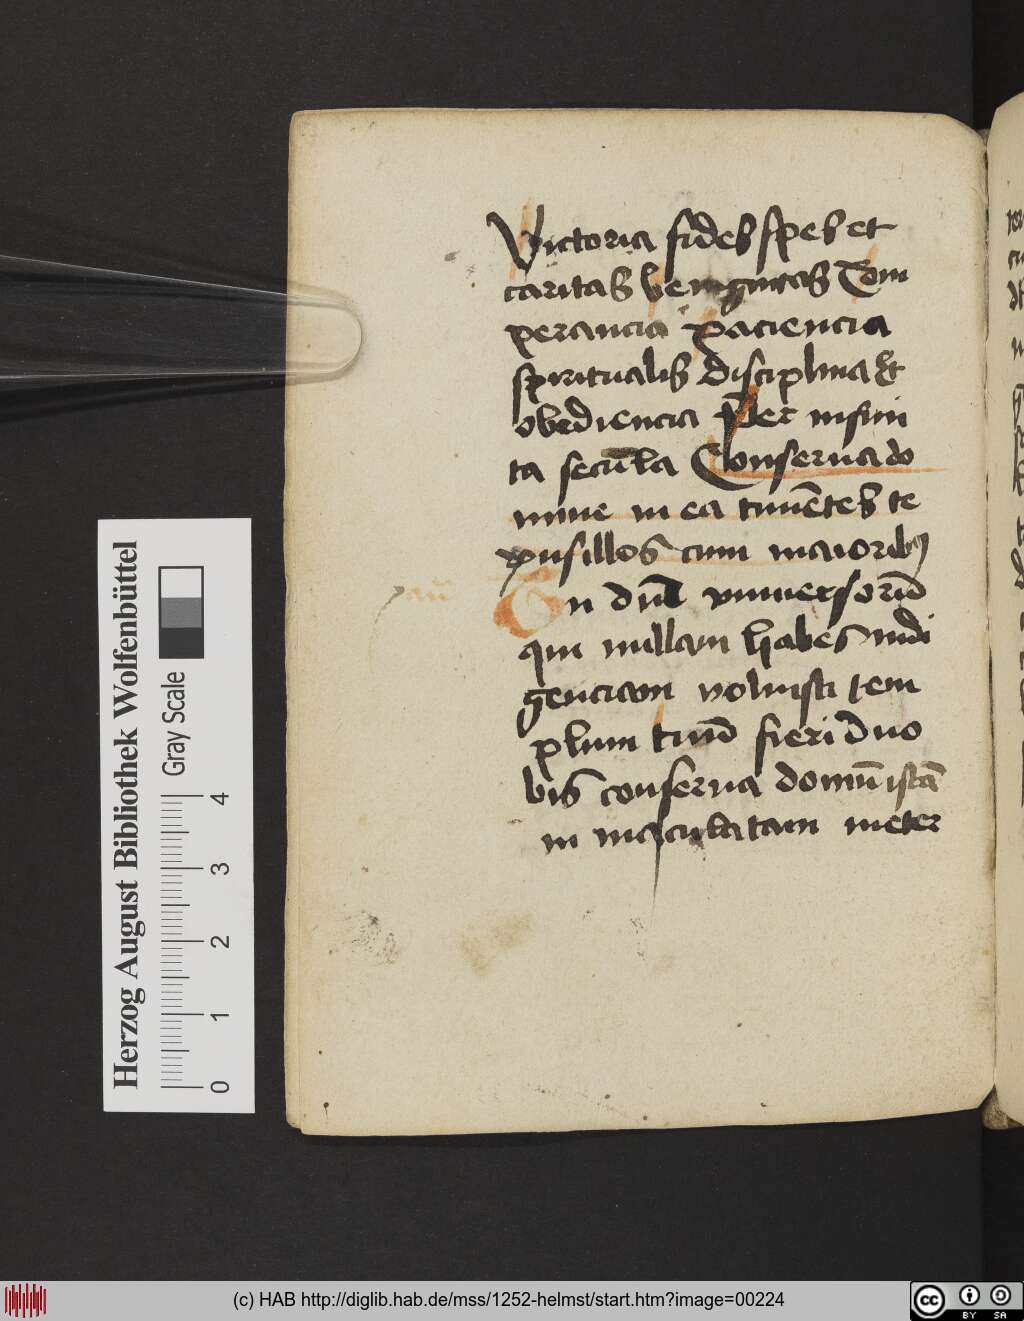 Victoria fides spes et
caritas benignitas Tem
perancia paciencia
spiritualis disciplina Et
obediencia Per infini
ta secula Conserua do
mine in ea timētes te
pusillos cum maioribꝰ
Tu dn̄e vniuersorū
qui nullam habes indi
genciam voluisti tem
plum tuū fieri in no
bis conserua domū istā
in maculatam in eter
Herzog August Bibliothek Wolfenbüttel
Gray Scale
0 1 2 3 4
(c) HAB http://diglib.hab.de/mss/1252-helmst/start.htm?image=00224
cc BY SA